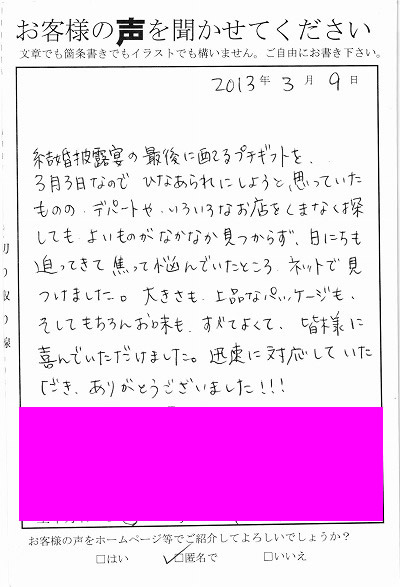 お客様の声を聞かせてください
文章でも箇条書きでもイラストでも構いません。ご自由にお書き下さい。
2013年 3月 9日
結婚披露宴の最後に配るプチギフトを、
3月3日なので ひなあられにしようと思っていた
ものの、デパートや、いろいろなお店をくまなく探
しても、よいものがなかなか見つからず、日にちも
迫ってきて 焦って悩んでいたところ、ネットで見
つけました。大きさも、上品なパッケージも、
そしてもちろんお味も、すべてよくて、皆様に
喜んでいただけました。迅速に対応していた
だき、ありがとうございました!!!
切り取り線
お客様の声をホームページ等でご紹介してよろしいでしょうか?
□はい ☑匿名で □いいえ